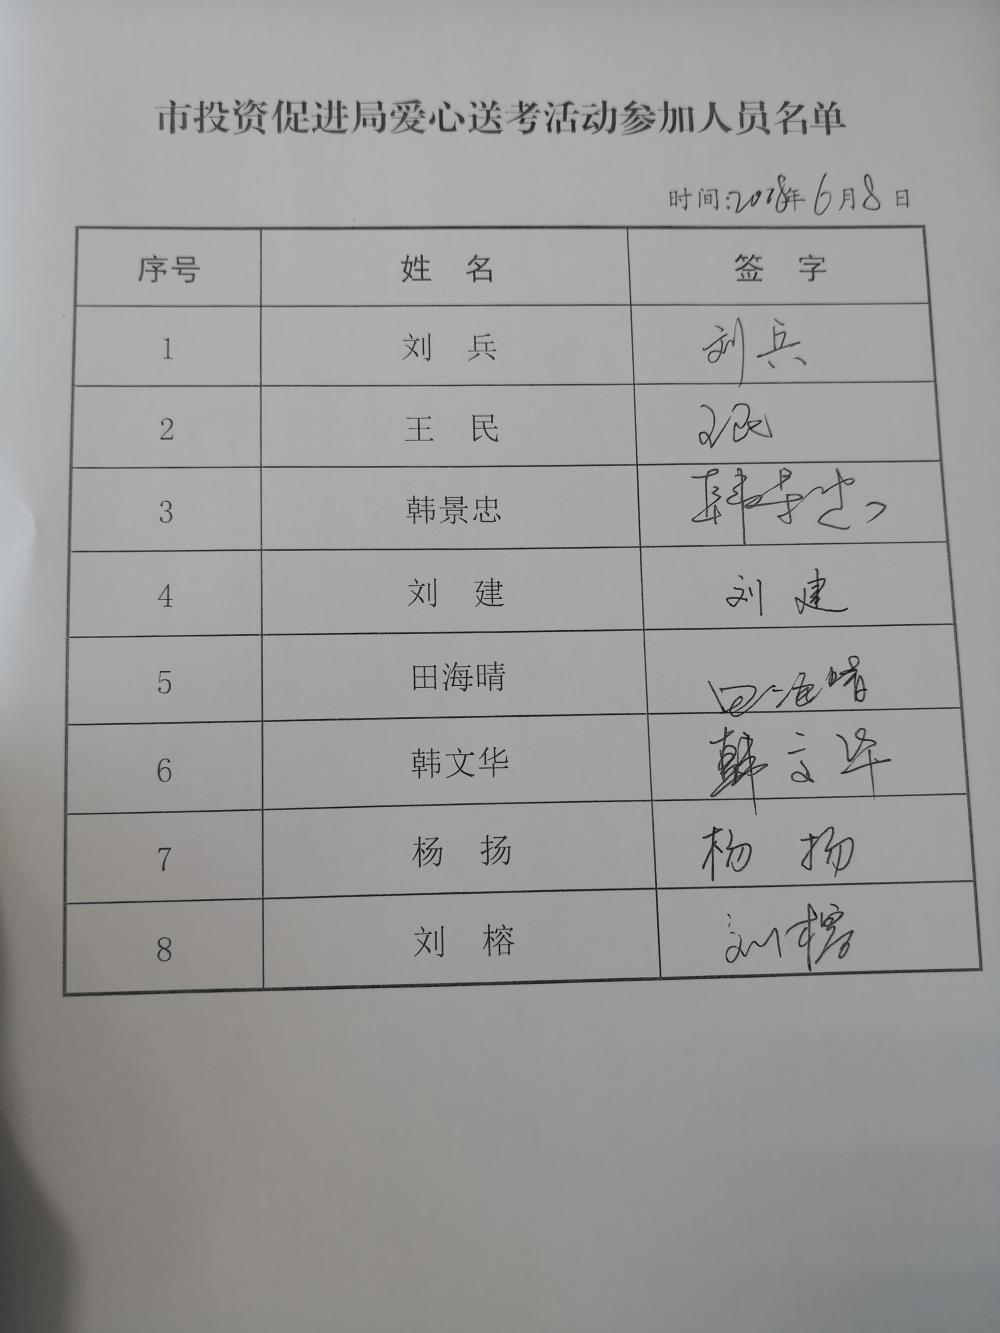 市投资促进局爱心送考活动参加人员名单
时间:2018年6月8日
序号 姓 名 签 字
1 刘 兵 刘兵
2 王 民 王民
3 韩景忠 韩景忠
4 刘 建 刘建
5 田海晴 田海晴
6 韩文华 韩文华
7 杨 扬 杨扬
8 刘 榕 刘榕